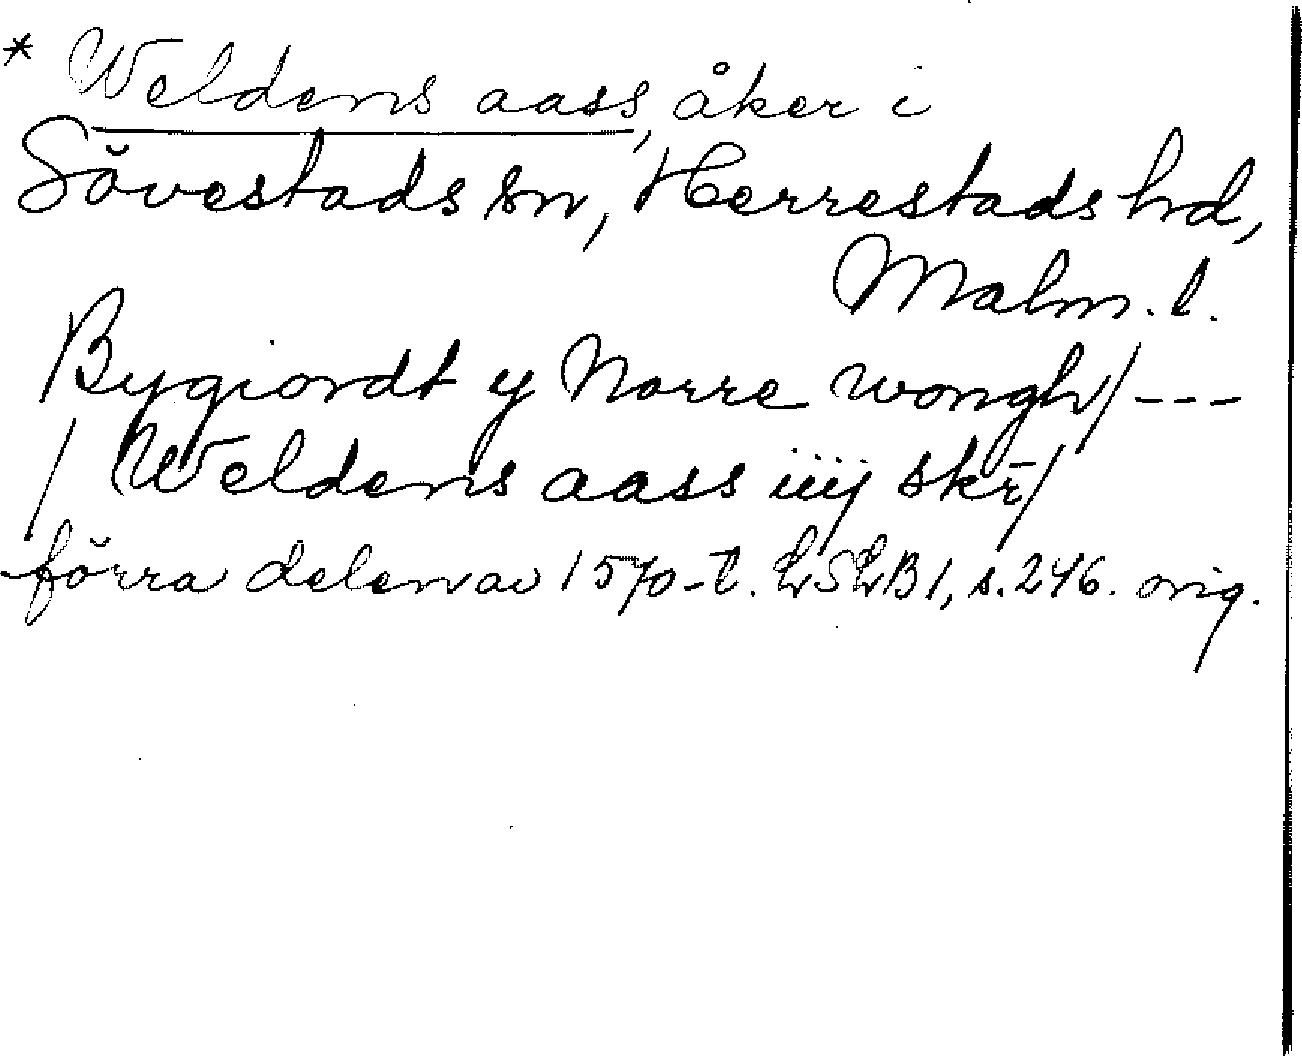 * Weldens aass, åker i
Sövestads sn, Herrestads hd,
Malm. l.
Bygiordt y Norre wongh/ ---
/ Weldens aass iiij skr̄/
förra delen av 1570-t. LSLB 1, s. 246. orig.